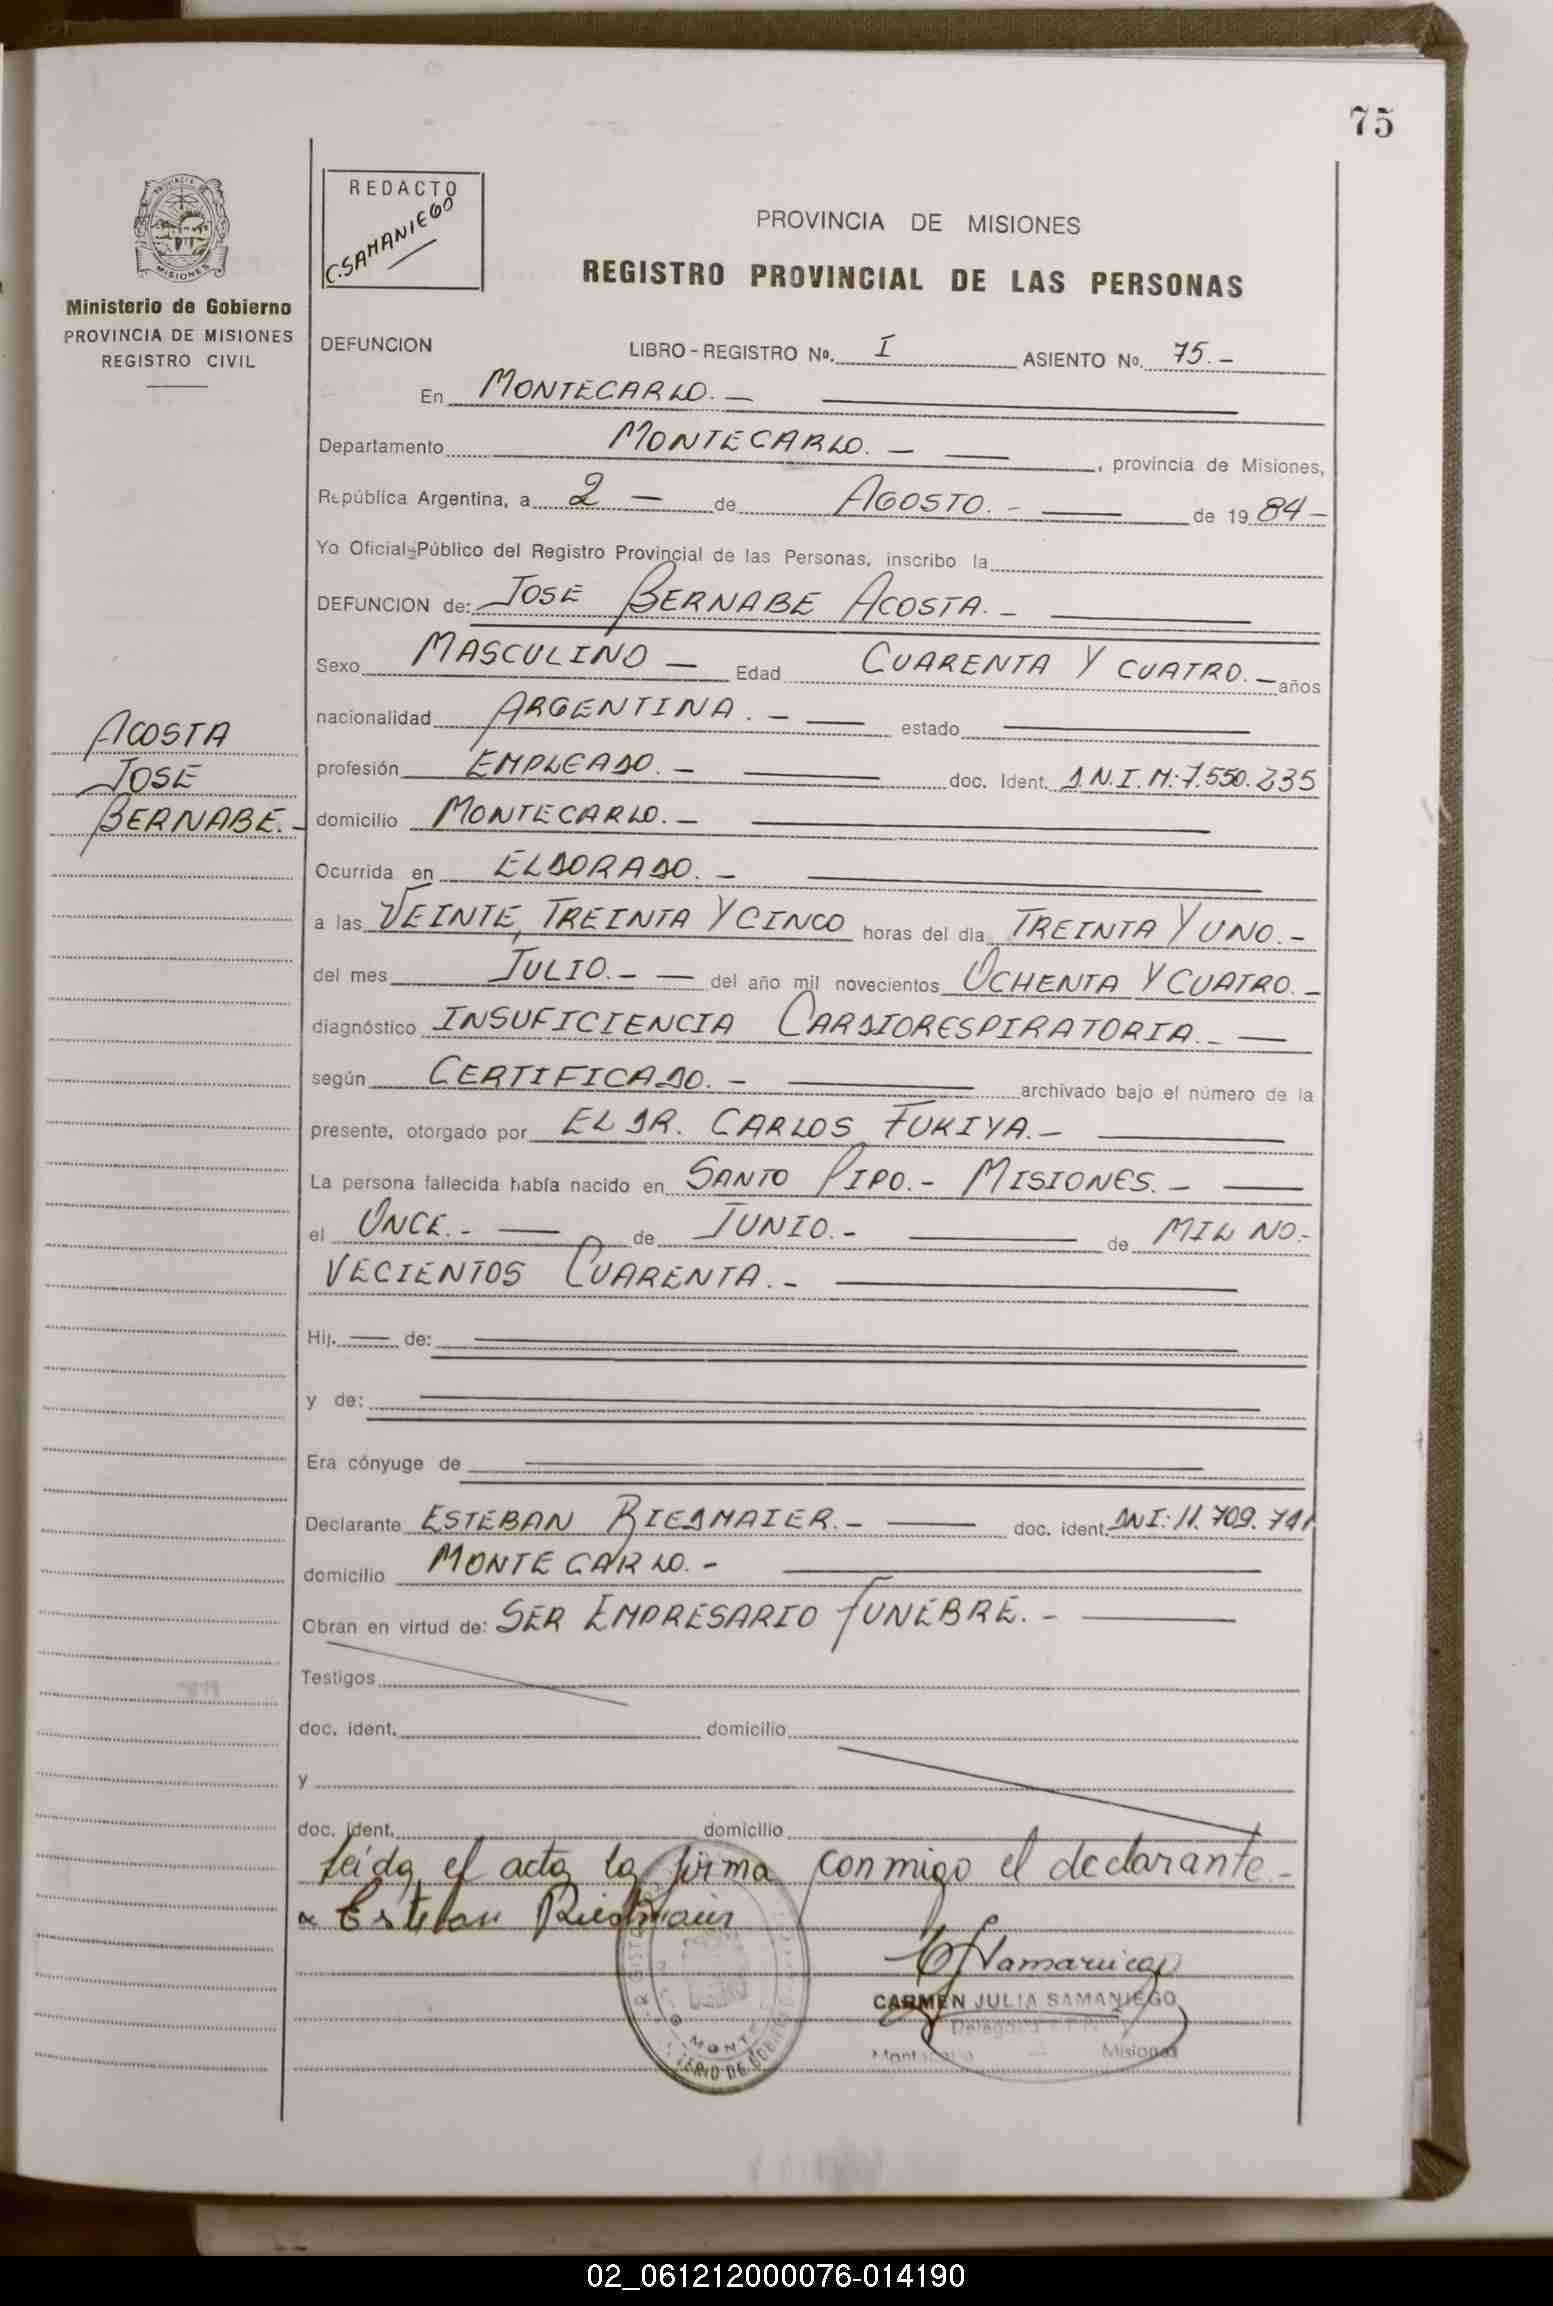 75
REDACTO
C. SAMANIEGO
PROVINCIA DE MISIONES
REGISTRO PROVINCIAL DE LAS PERSONAS
PROVINCIA DE
MISIONES
Ministerio de Gobierno
PROVINCIA DE MISIONES
REGISTRO CIVIL
DEFUNCION LIBRO - REGISTRO Nº. I ASIENTO Nº. 75.-
En MONTECARLO.-
Departamento MONTECARLO.- , provincia de Misiones,
República Argentina, a 2 - de AGOSTO.- de 1984-
Yo Oficial Público del Registro Provincial de las Personas, inscribo la
DEFUNCION de: JOSE BERNABE ACOSTA.-
Sexo MASCULINO - Edad CUARENTA Y CUATRO.- años
nacionalidad ARGENTINA.- estado
profesión EMPLEADO.- doc. Ident. D.N.I.M: 7.550.235
domicilio MONTECARLO.-
ACOSTA
JOSE
BERNABE.-
Ocurrida en ELDORADO.-
a las VEINTE, TREINTA Y CINCO horas del día TREINTA Y UNO.-
del mes JULIO.- del año mil novecientos OCHENTA Y CUATRO.-
diagnóstico INSUFICIENCIA CARDIORESPIRATORIA.-
según CERTIFICADO.- archivado bajo el número de la
presente, otorgado por EL DR. CARLOS FUKIYA.-
La persona fallecida había nacido en SANTO PIPO.- MISIONES.-
el ONCE.- de JUNIO.- de MIL NO-
VECIENTOS CUARENTA.-
Hij. de:
y de:
Era cónyuge de
Declarante ESTEBAN RIEDMAIER.- doc. ident. DNI: 11.709.741
domicilio MONTECARLO.-
Obran en virtud de: SER EMPRESARIO FUNEBRE.-
Testigos
doc. ident. domicilio
y
doc. ident. domicilio
leida el acta la firma conmigo el declarante.-
Esteban Riedmaier
CARMEN JULIA SAMANIEGO
Misiones
02_061212000076-014190